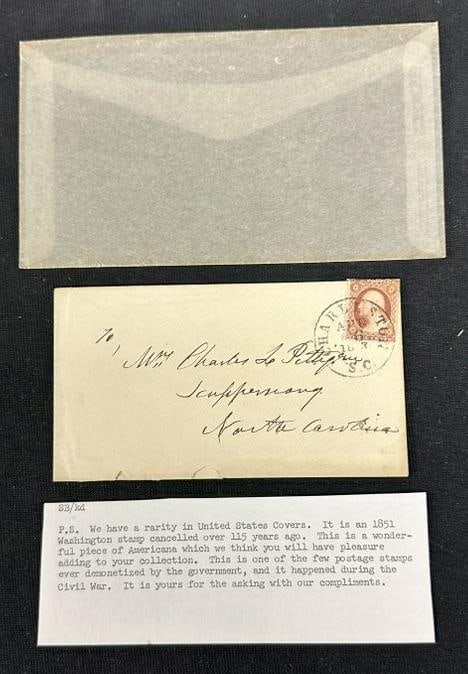 CHARLESTON
AUG
6
S.C.
To
Mrs Charles L Pettigrew
Scuppernong
North Carolina
SB/kd
P.S. We have a rarity in United States Covers. It is an 1851
Washington stamp cancelled over 115 years ago. This is a wonder-
ful piece of Americana which we think you will have pleasure
adding to your collection. This is one of the few postage stamps
ever demonetized by the government, and it happened during the
Civil War. It is yours for the asking with our compliments.